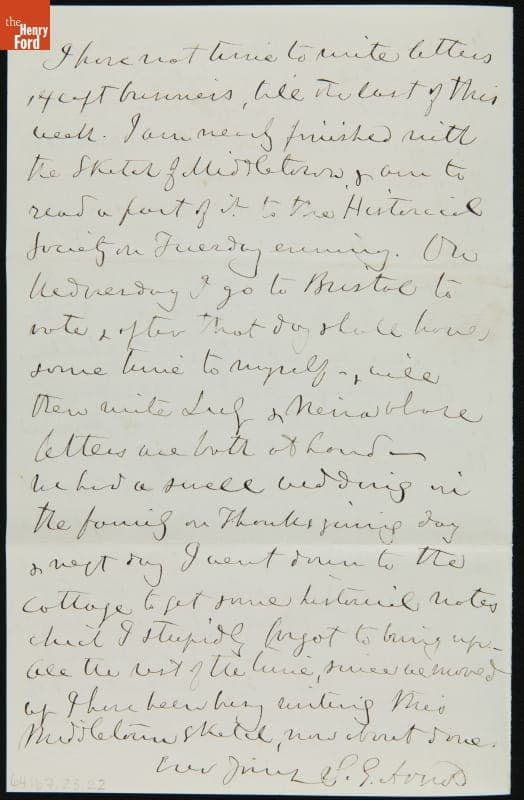 the Henry Ford
I have not time to write letters
, except business, till the last of this
week. I am nearly finished with
the sketch of Middletown, & am to
read a part of it to the Historical
Society on Tuesday evening. On
Wednesday I go to Bristol to
vote & after that day shall have
some time to myself - & will
then write Lucy & whose
letters are both at hand —
We had a small wedding in
the family on Thanksgiving day
& next day I went down to the
cottage to get some historical notes
which I stupidly forgot to bring up -
All the rest of the time, since we moved
up I have been busy writing this
Middletown sketch, now about done.
Ever Yours S. G. Arnold
64.167.23.22